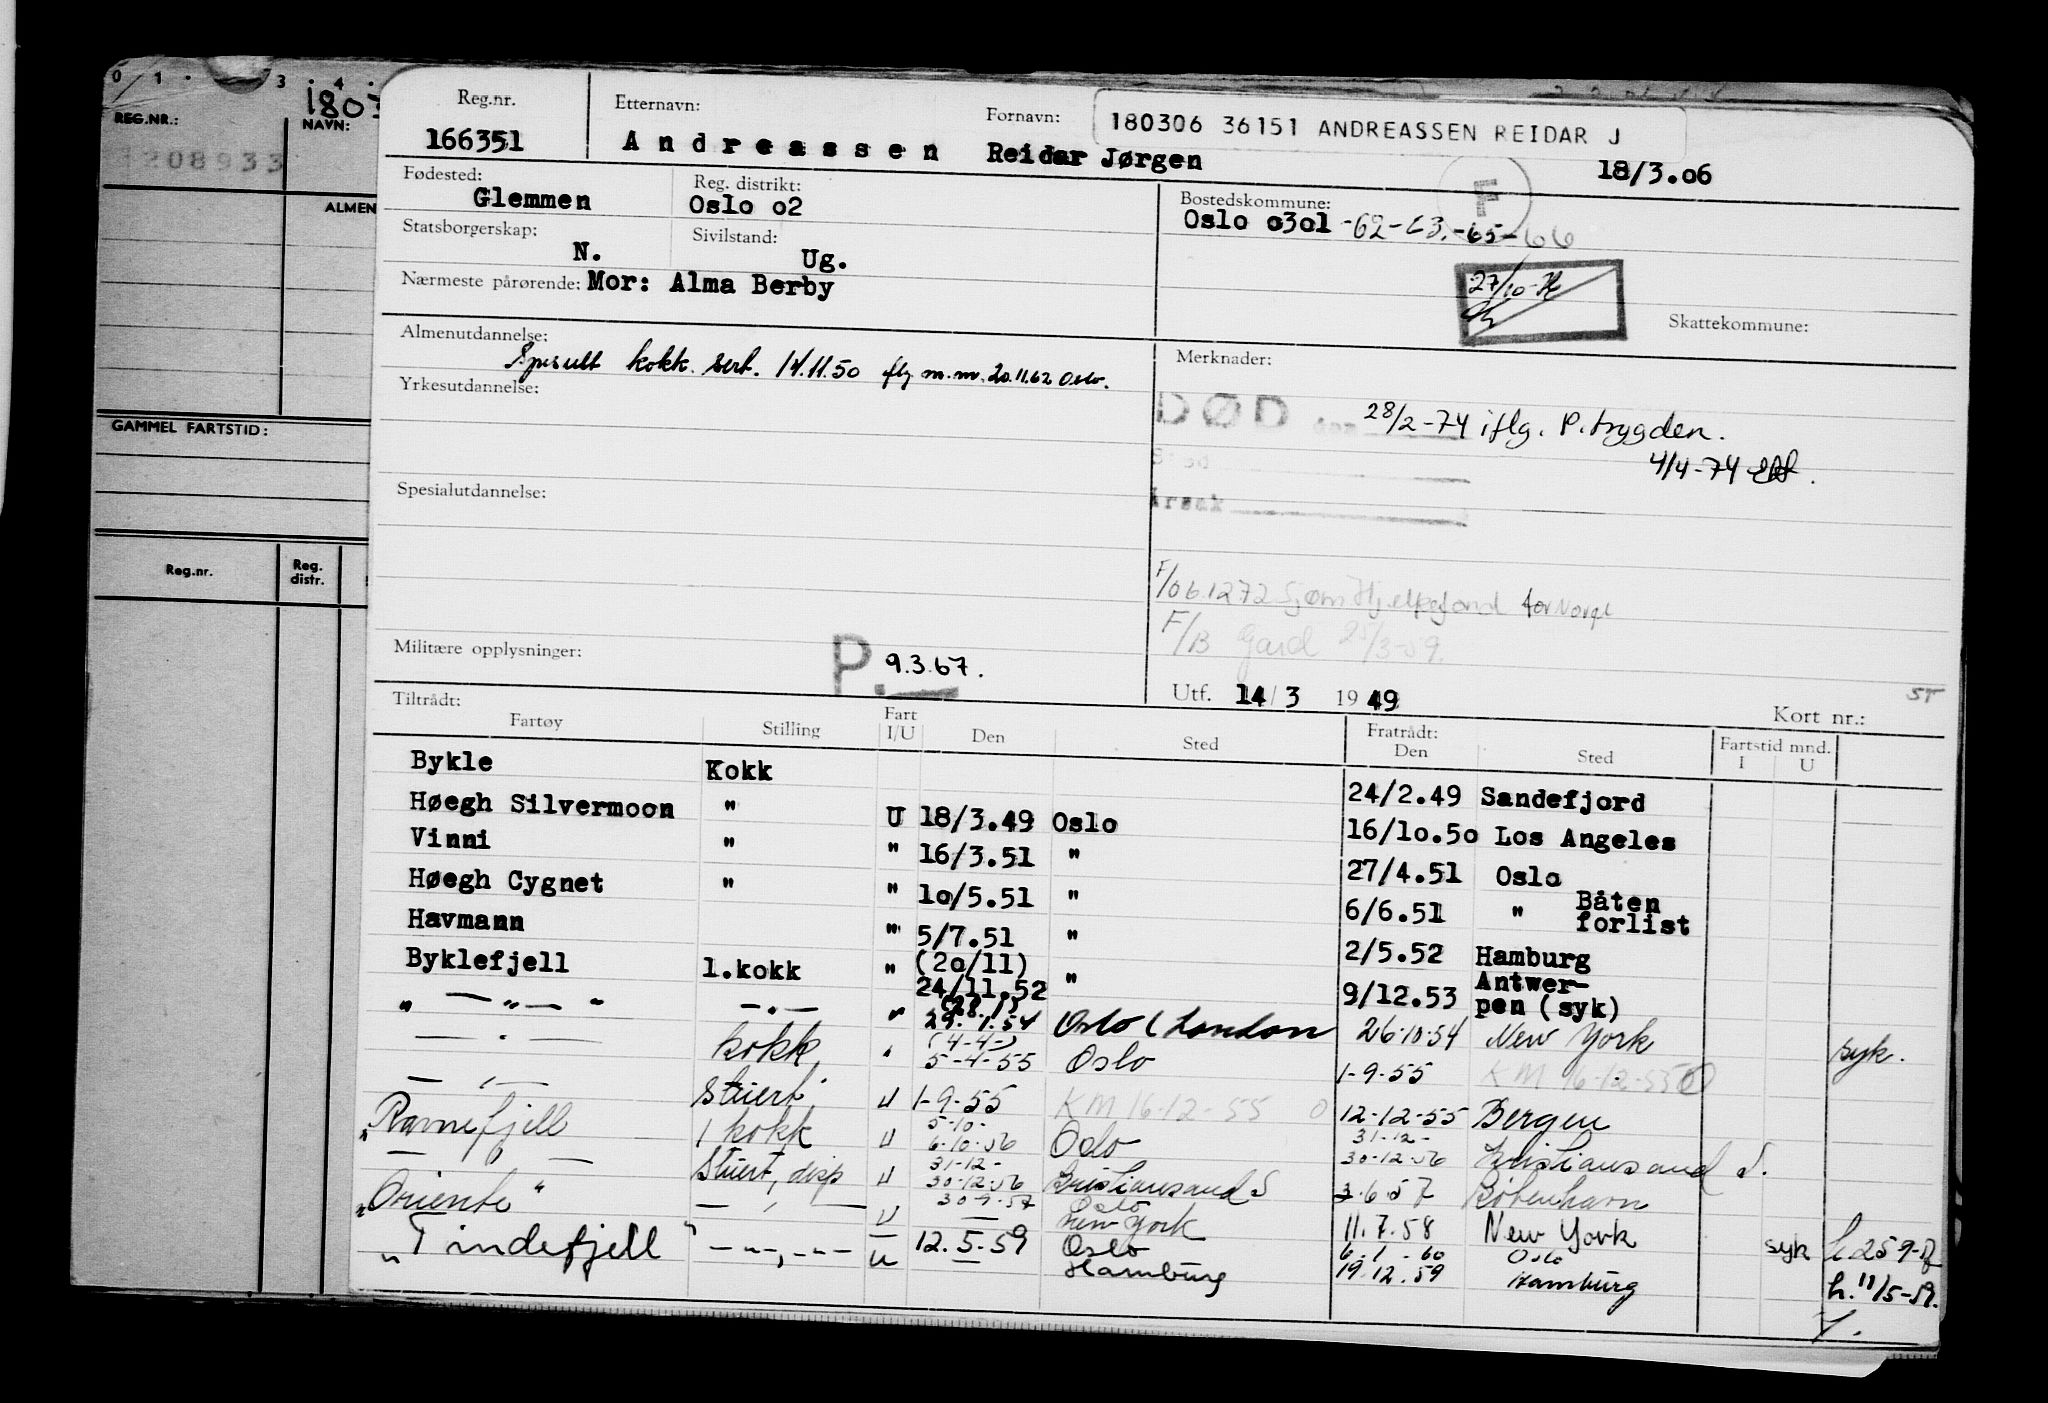 0 1 · 3 · 4 ·
REG.NR.:
NAVN:
208933
ALMEN
GAMMEL FARTSTID:
Reg.nr.
Reg. distr.
Reg.nr.
166351
Etternavn:
Andreassen
Fornavn:
Reidar Jørgen
180306 36151 ANDREASSEN REIDAR J
18/3.06
Fødested:
Glemmen
Reg. distrikt:
Oslo o2
Bostedskommune:
Oslo o3ol -62-63.-65-66
F
Statsborgerskap:
N.
Sivilstand:
Ug.
Nærmeste pårørende: Mor: Alma Berby
27/10-
Skattekommune:
Almenutdannelse:
kokk. sert. 14.11.50 flg m.m. 20.11.62 Oslo.
Yrkesutdannelse:
Merknader:
DØD den 28/2-74 iflg. P.trygden.
4/4-74
Sted
Årsak
Spesialutdannelse:
F/06.1272 Sjøm Hjelpefond for Norge
F/B Gard 25/3-59.
Militære opplysninger:
P. 9.3.67.
Utf. 14/3 1949
Kort nr.:
ST
Tiltrådt:
Fartøy Stilling Fart I/U Den Sted Fratrådt: Den Sted Fartstid mnd. I U
Bykle Kokk 24/2.49 Sandefjord
Høegh Silvermoon " U 18/3.49 Oslo 16/lo.5o Los Angeles
Vinni " " 16/3.51 " 27/4.51 Oslo
Høegh Cygnet " " lo/5.51 " 6/6.51 " Båten forlist
Havmann "' 5/7.51 " 2/5.52 Hamburg
Byklefjell l.kokk " (2o/11) 24/11.52 " 9/12.53 Antwerpen (syk)
" — " — " —"— " (28.1) 29.1.54 Oslo (London 26.10.54 New York syk.
— " — kokk " (4-4-) 5-4-55 Oslo 1-9-55 KM 16-12-55
— " — Stuert U 1-9-55 KM 16-12-55 0 12-12-55 Bergen
"Ravnefjell 1 kokk U 5-10- 6.10.56 Oslo 31-12- 30-12.56 Kristiansand S.
— " — Stuert, disp U 31-12- 30.12.56 Kristiansand S 3.6.57 København
"Oriente" — " — U 30-9-57 Oslo New York 11.7.58 New York syk h.25 9-57
"Tindefjell" —-"-— U 12.5.59 Oslo Hamburg 6.1-60 Oslo 19.12.59 Hamburg h.11/5-59.